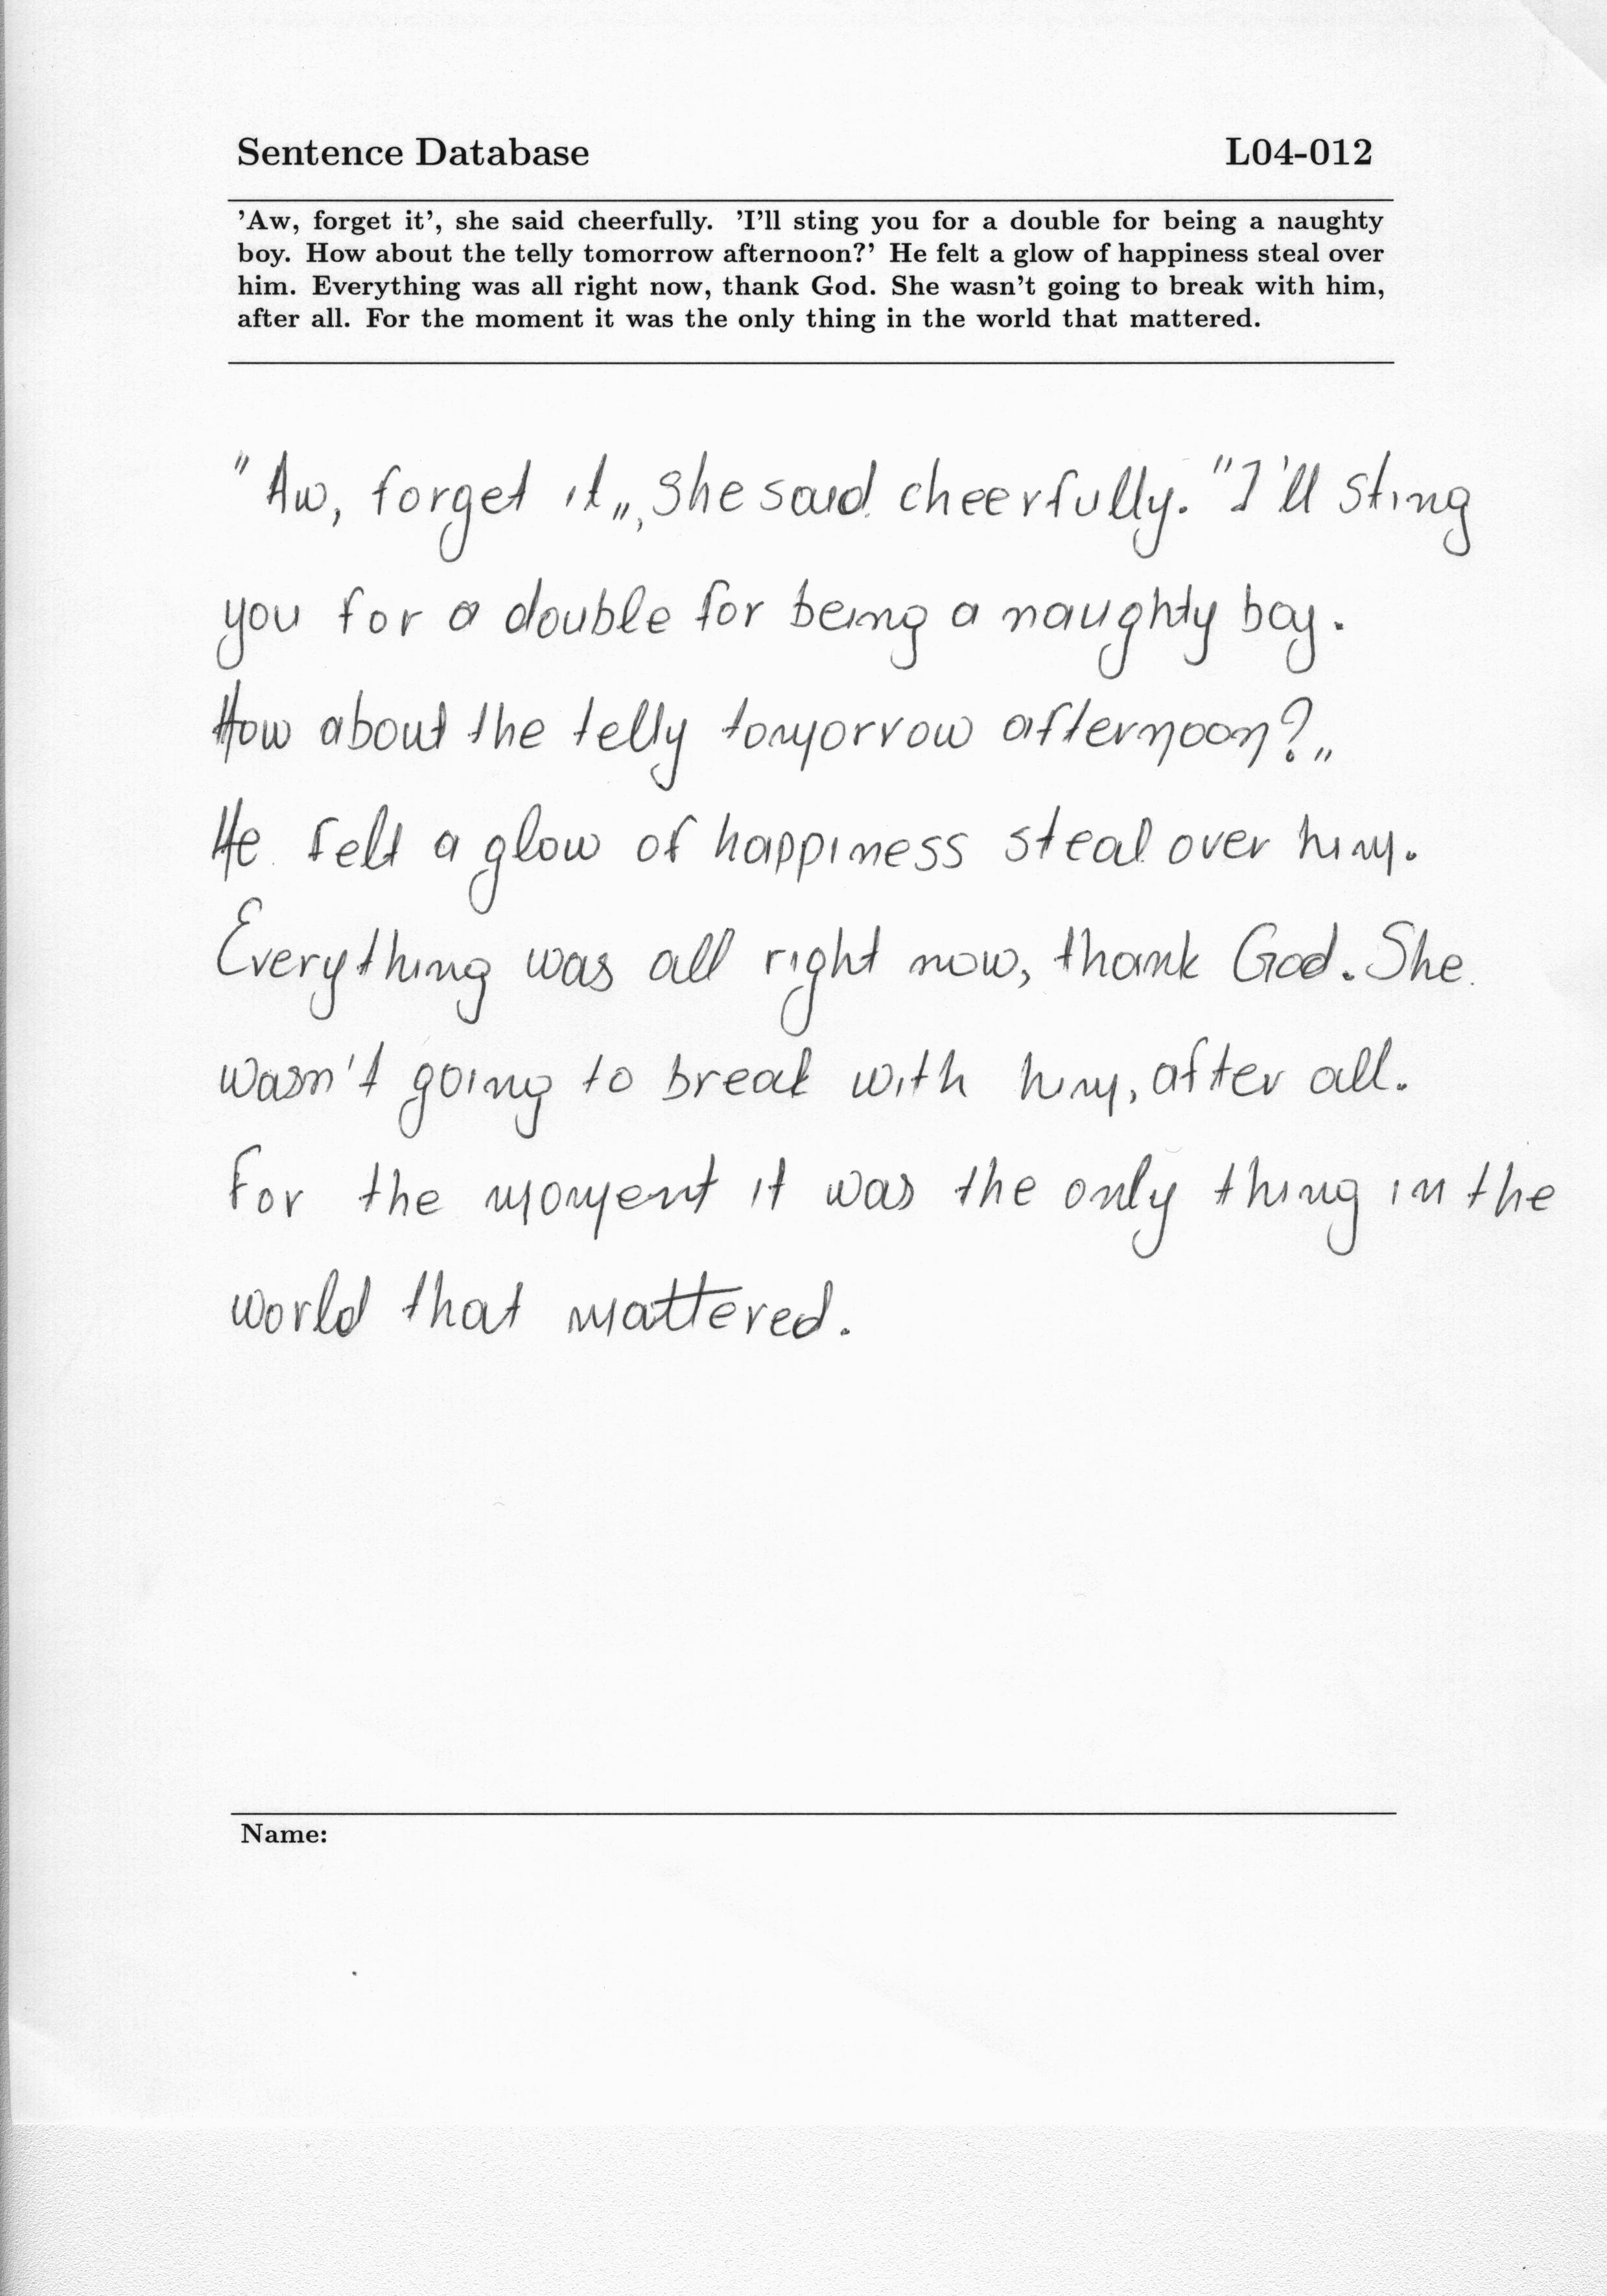 Sentence Database L04-012
’Aw, forget it’, she said cheerfully. ’I’ll sting you for a double for being a naughty
boy. How about the telly tomorrow afternoon?’ He felt a glow of happiness steal over
him. Everything was all right now, thank God. She wasn’t going to break with him,
after all. For the moment it was the only thing in the world that mattered.
"Aw, forget it„, she said cheerfully. "I'll sting
you for a double for being a naughty boy.
How about the telly tomorrow afternoon?„
He felt a glow of happiness steal over him.
Everything was all right now, thank God. She
wasn't going to break with him, after all.
For the moment it was the only thing in the
world that mattered.
Name: